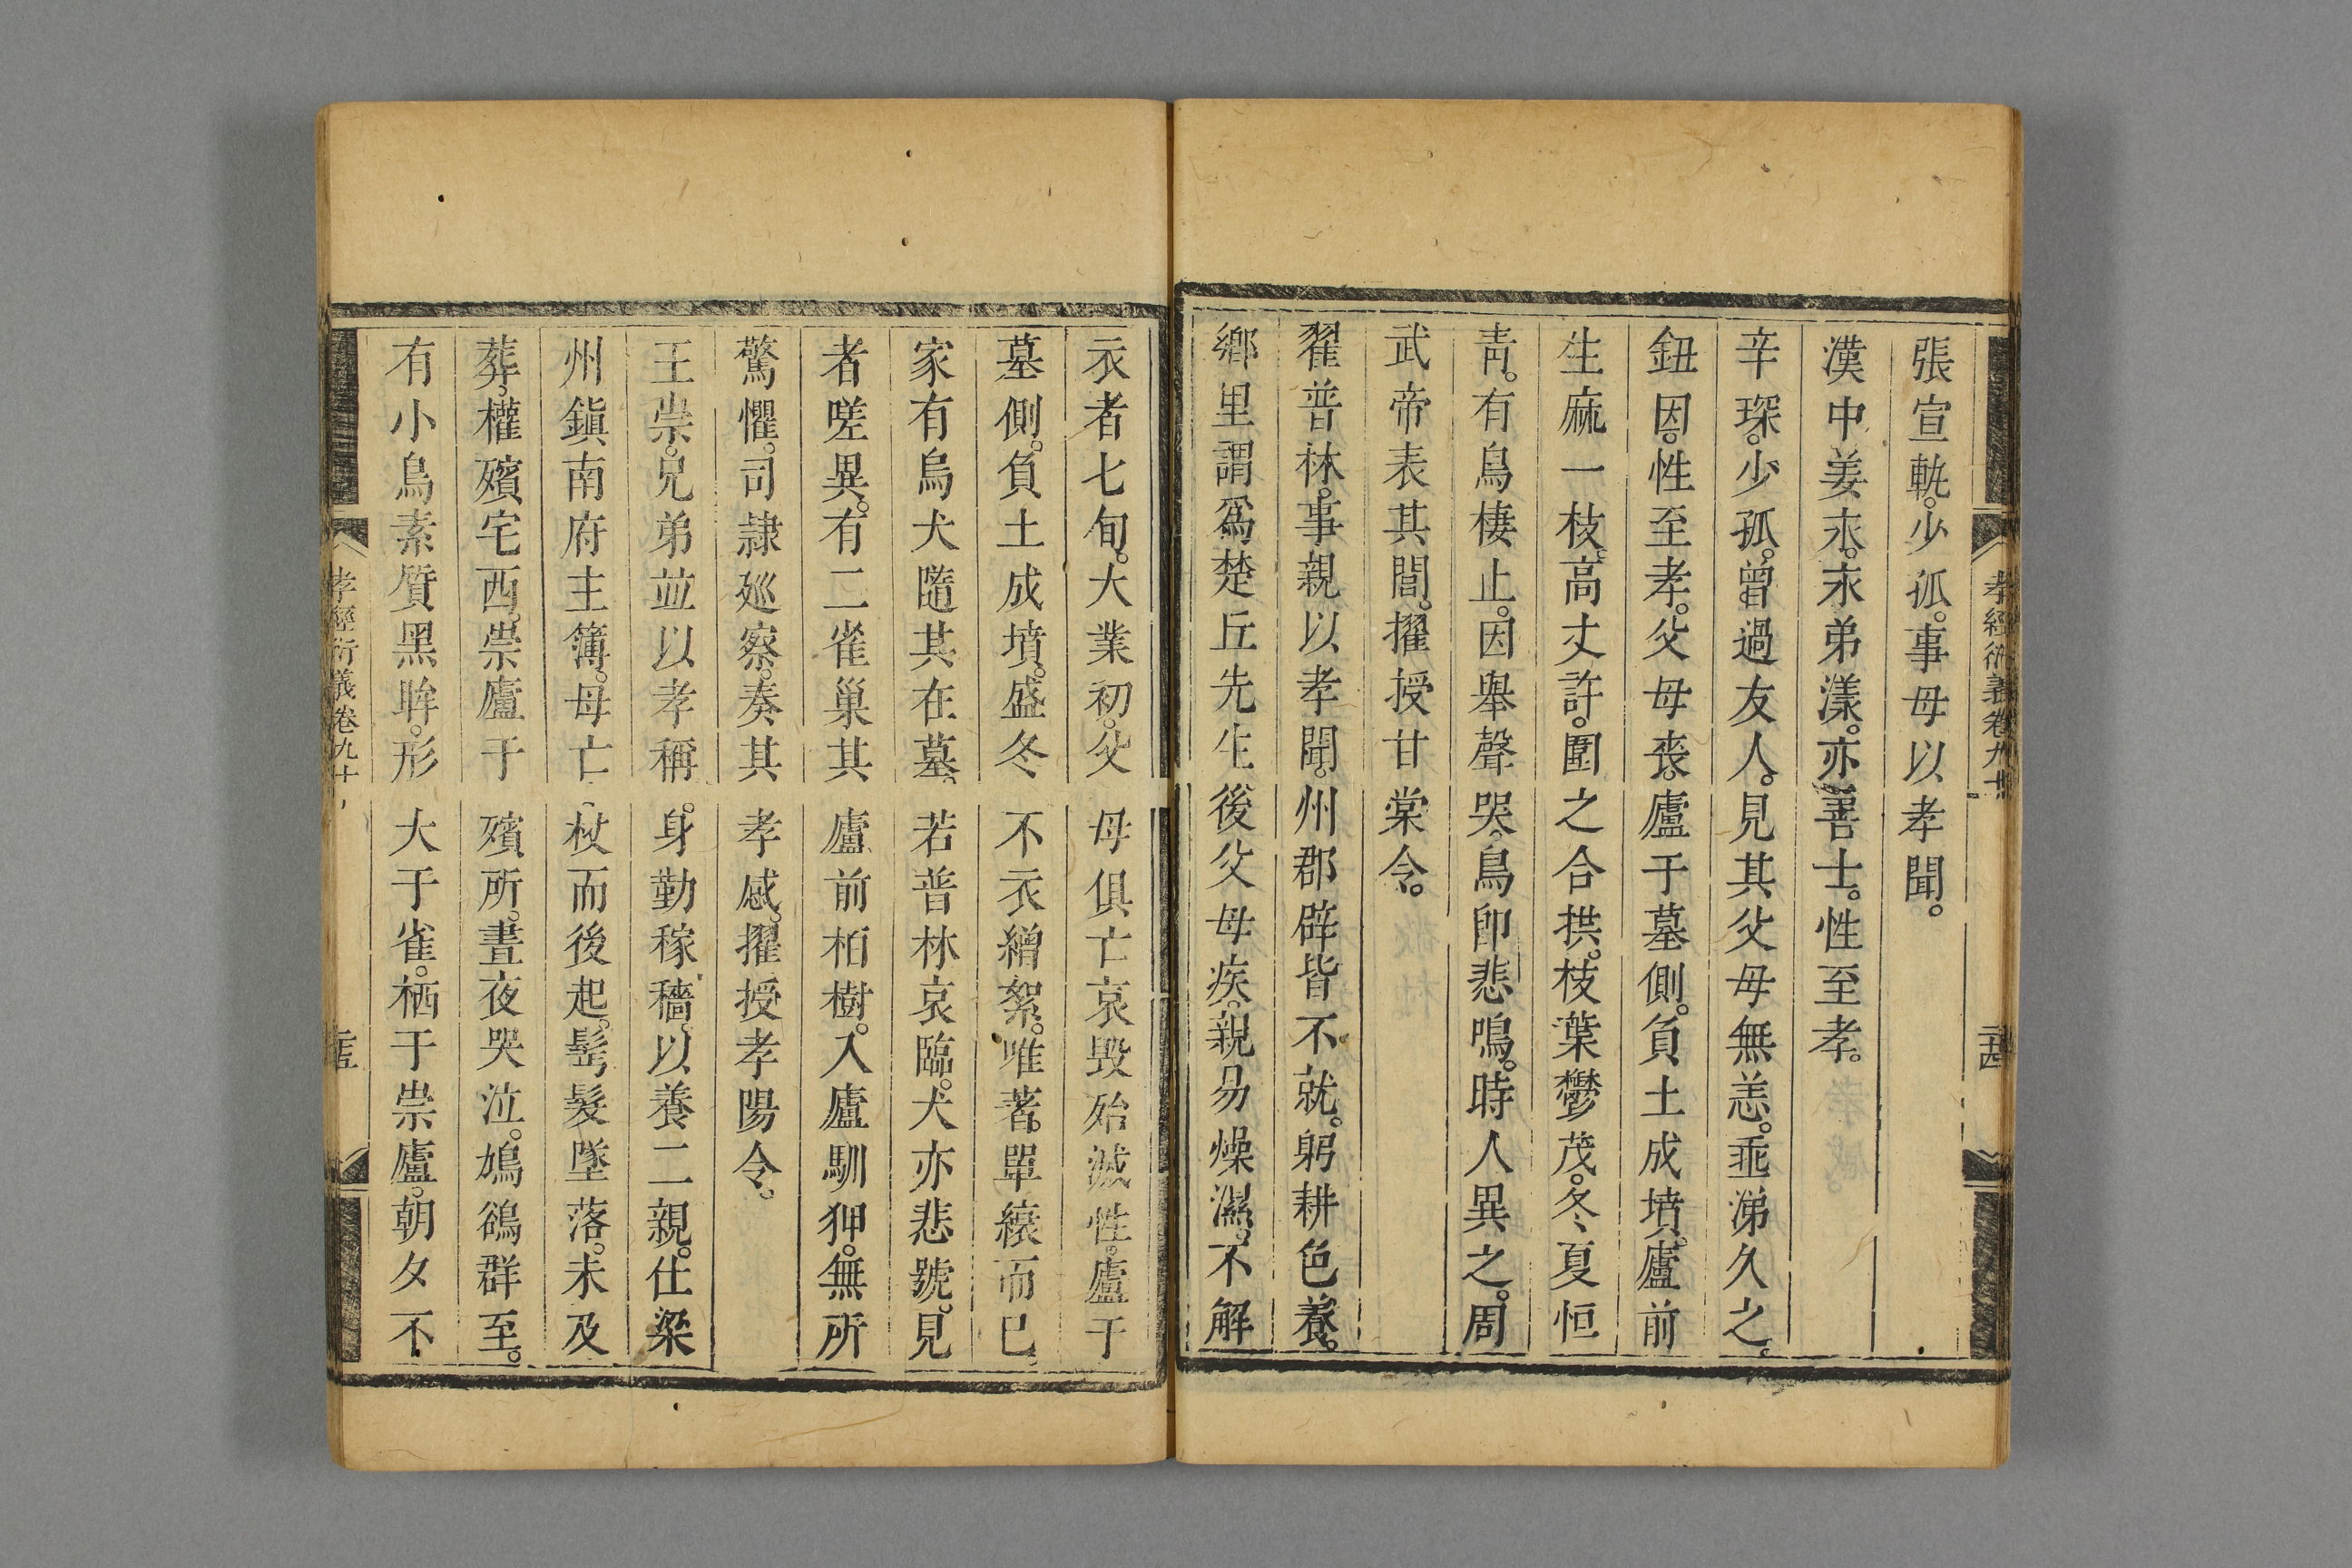 孝經衍義卷九十
張宣軌。少孤。事母以孝聞。
漢中姜永。永弟漾。亦善士。性至孝。
辛琛。少孤。曾過友人。見其父母無恙。垂涕久之。
鈕因。性至孝。父母喪。廬于墓側。負土成墳。廬前
生麻一枝。高丈許。圍之合拱。枝葉鬱茂。冬夏恒
青。有鳥棲止。因舉聲哭。鳥卽悲鳴。時人異之。周
武帝表其閭。擢授甘棠令。
翟普林。事親以孝聞。州郡辟皆不就。躬耕色養。
鄉里謂爲楚丘先生後父母疾。親易燥濕。不解
衣者七旬。大業初。父母俱亡哀毀殆滅性。廬于
墓側。負土成墳。盛冬不衣繒絮。唯著。單縗而已
家有烏犬隨其在墓。若普林哀臨。犬亦悲號。見
者嗟異。有二雀巢其廬前柏樹。入廬馴狎。無所
驚懼。司隸廵察。奏其孝感。擢授孝陽令。
王崇。兄弟並以孝稱。身勤稼穡。以養二親。仕梁
州鎭南府主簿。母亡。杖而後起。髩髮墜落。未及
葬。權殯宅西。崇廬于殯所。晝夜哭泣。鳩鴿群至。
有小鳥素質黑眸。形大于雀。栖于崇廬。朝夕不
孝經衍義卷九十